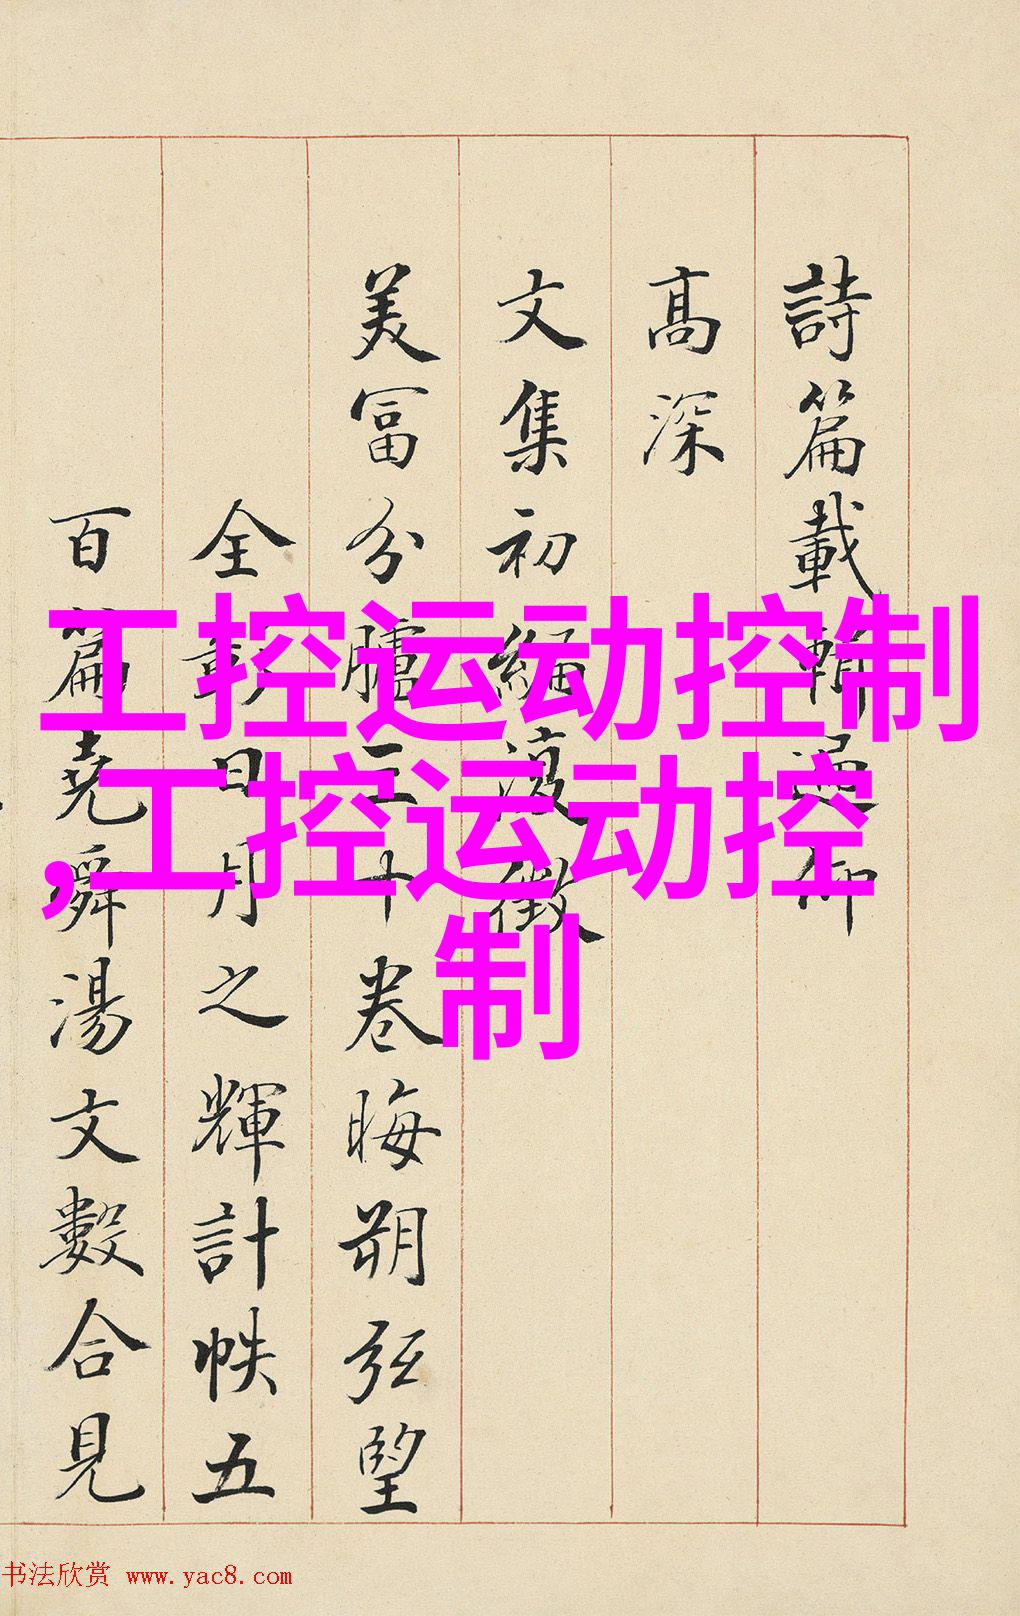 詩篇載輯遥仰
高深
文集初編復徴
美富分臚三十卷晦朔弦望
全彰日月之輝計帙五
百篇堯舜湯文數合見
工控运动控制
,工控运动控
制
书法欣赏 www.yac8.com